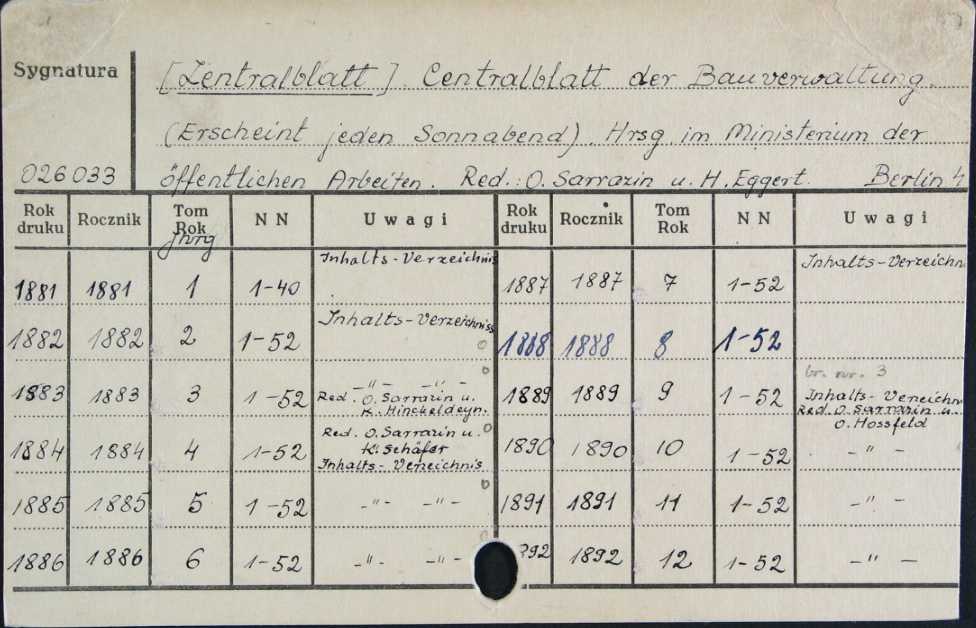 Sygnatura
[Zentralblatt]. Centralblatt der Bauverwaltung.
(Erscheint jeden Sonnabend). Hrsg im Ministerium der
026033 öffentlichen Arbeiten. Red.: O. Sarrazin u. H. Eggert. Berlin 4
Rok druku Rocznik Tom Rok NN Uwagi Rok druku Rocznik Tom Rok NN Uwagi
Jhrg
1881 1881 1 1-40 Inhalts-Verzeichnis 1887 1887 7 1-52 Inhalts-Verzeichn
1882 1882 2 1-52 Inhalts-Verzeichniss 1888 1888 8 1-52
br. nr. 3
1883 1883 3 1-52 -"- -"- 1889 1889 9 1-52 Inhalts-Verzeichn
Red. O. Sarrazin u. Red. O. Sarrazin u.
K. Hinckeldeyn. O. Hossfeld
1884 1884 4 1-52 Red. O. Sarrazin u. 1890 1890 10 1-52 -"-
K. Schäfer
Inhalts-Verzeichnis
1885 1885 5 1-52 -"- -"- 1891 1891 11 1-52 -"-
1886 1886 6 1-52 -"- -"- 892 1892 12 1-52 -"-